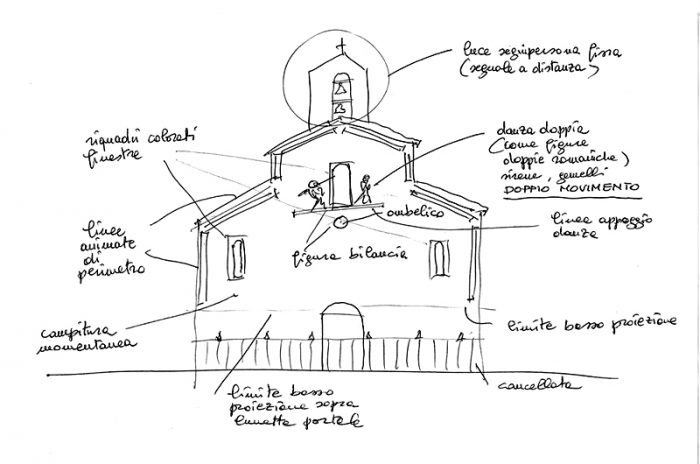 luce seguipersona fissa
(segnale a distanza)
riquadri colorati
finestre
danza doppia
(come figure
doppie romaniche)
sirene, gemelli
DOPPIO MOVIMENTO
ombelico
linea appoggio
danza
linee
animate
di
perimetro
figura bilancia
campitura
momentanea
limite basso proiezione
limite basso
proiezione sopra
lunetta portale
cancellata